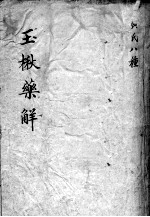 黃氏八種
玉楸藥解